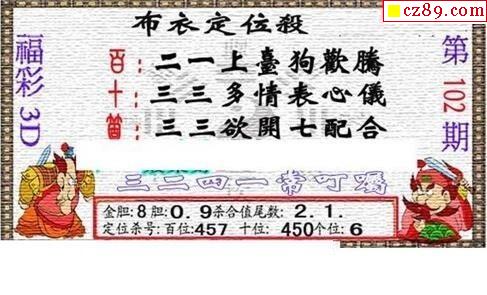 cz89.com
布衣定位殺
福彩3D
第102期
百：二一上臺狗歡騰
十：三三多情表心儀
箇：三三欲開七配合
三二四一常叮嚀
金胆:8胆:0.9杀合值尾数:2.1.
定位杀号:百位:457 十位:450个位:6